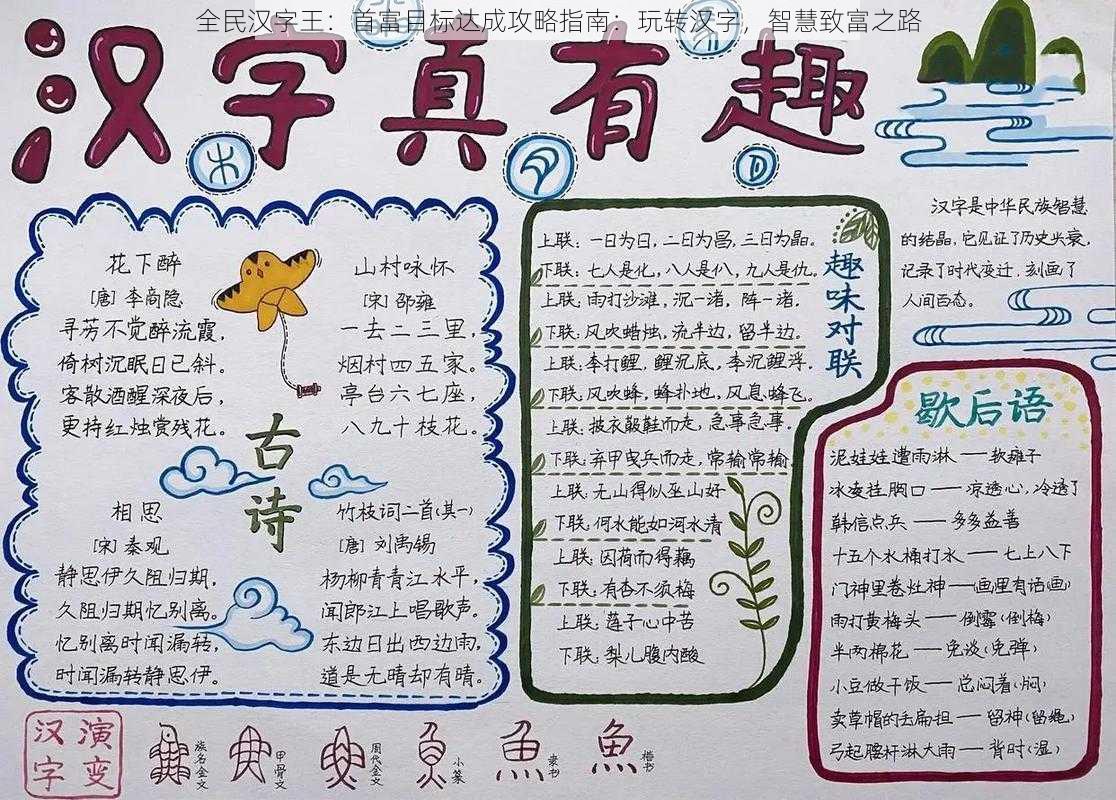 全民汉字王：首富目标达成攻略指南：玩转汉字，智慧致富之路
汉字真有趣
木
日
花下醉
[唐] 李商隐
寻芳不觉醉流霞，
倚树沉眠日已斜。
客散酒醒深夜后，
更持红烛赏残花。
山村咏怀
[宋] 邵雍
一去二三里，
烟村四五家。
亭台六七座，
八九十枝花。
古诗
相思
[宋] 秦观
静思伊久阻归期，
久阻归期忆别离。
忆别离时闻漏转，
时闻漏转静思伊。
竹枝词二首(其一)
[唐] 刘禹锡
杨柳青青江水平，
闻郎江上唱歌声。
东边日出西边雨，
道是无晴却有晴。
趣味对联
上联：一日为日，二日为昌，三日为晶。
下联：七人是化，八人是仈，九人是仇。
上联：雨打沙滩，沉一渚，阵一渚。
下联：风吹蜡烛，流半边，留半边。
上联：李打鲤，鲤沉底，李沉鲤浮。
下联：风吹蜂，蜂扑地，风息蜂飞。
上联：披衣靸鞋而走，急事急事。
下联：弃甲曳兵而走，常输常输
上联：无山得似巫山好
下联：何水能如河水清
上联：因荷而得藕
下联：有杏不须梅
上联：莲子心中苦
下联：梨儿腹内酸
汉字是中华民族智慧
的结晶，它见证了历史兴衰，
记录了时代变迁，刻画了
人间百态。
歇后语
泥娃娃遭雨淋——软瘫子
冰凌挂胸口——凉透心，冷透了
韩信点兵——多多益善
十五个水桶打水——七上八下
门神里卷灶神——画里有话(画)
雨打黄梅头——倒霉(倒梅)
半两棉花——免谈(免弹)
小豆做干饭——总闷着(焖)
卖草帽的丢扁担——留神(留绳)
弓起腰杆淋大雨——背时(湿)
汉字演变
族名金文
甲骨文
周代金文
小篆
魚
隶书
魚
楷书